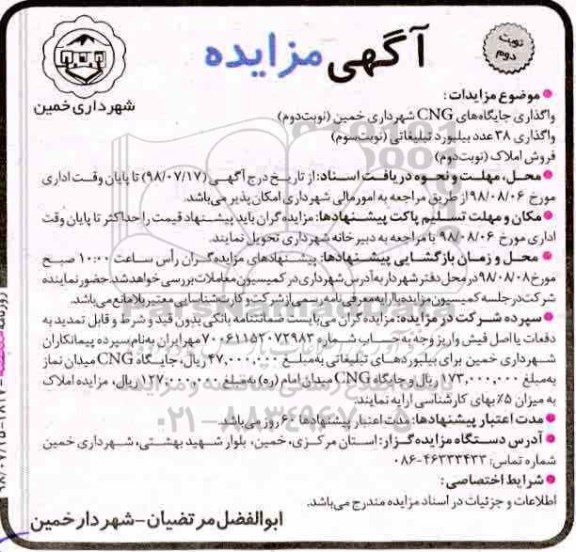 نوبت دوم
آگهی مزایده
شهرداری خمین
● موضوع مزایدات:
واگذاری جایگاه‌های CNG شهرداری خمین (نوبت‌دوم)
واگذاری ۳۸ عدد بیلبورد تبلیغاتی (نوبت‌سوم)
فروش املاک (نوبت‌دوم)
● محل، مهلت و نحوه دریافت اسناد: از تاریخ درج آگهی (۹۸/۰۷/۱۷) تا پایان وقت اداری
مورخ ۹۸/۰۸/۰۶ از طریق مراجعه به امور مالی شهرداری امکان پذیر می‌باشد.
● مکان و مهلت تسلیم پاکت پیشنهادها: مزایده گران باید پیشنهاد قیمت را حداکثر تا پایان وقت
اداری مورخ ۹۸/۰۸/۰۶ با مراجعه به دبیرخانه شهرداری تحویل نمایند.
● محل و زمان بازگشایی پیشنهادها: پیشنهادهای مزایده‌گران رأس ساعت ۱۰:۰۰ صبح
مورخ ۹۸/۰۸/۰۸ در محل دفتر شهردار به آدرس شهرداری در کمیسیون معاملات بررسی خواهد شد. حضور نماینده
شرکت در جلسه کمیسیون مزایده با ارایه معرفی نامه رسمی از شرکت و کارت شناسایی معتبر بلامانع می‌باشد.
● سپرده شرکت در مزایده: مزایده گران می‌بایست ضمانتنامه بانکی بدون قید و شرط و قابل تمدید به
دفعات یا اصل فیش واریز وجه به حساب شماره ۷۰۰۶۱۱۵۲۰۷۲۹۸۳ مهر ایران به نام سپرده پیمانکاران
شهرداری خمین برای بیلبوردهای تبلیغاتی به‌مبلغ ۴۷,۰۰۰,۰۰۰ ریال، جایگاه CNG میدان نماز
به‌مبلغ ۱۷۳,۰۰۰,۰۰۰ ریال و جایگاه CNG میدان امام (ره) به‌مبلغ ۱۲۷,۰۰۰,۰۰۰ ریال، مزایده املاک
به میزان ۵٪ بهای کارشناسی ارایه نمایند.
● مدت اعتبار پیشنهادها: مدت اعتبار پیشنهادها ۶۰ روز می‌باشد.
● آدرس دستگاه مزایده‌گزار: استان مرکزی، خمین، بلوار شهید بهشتی، شهرداری خمین
شماره تماس: ۴۶۳۳۳۴۳۳-۰۸۶
● شرایط اختصاصی:
اطلاعات و جزئیات در اسناد مزایده مندرج می‌باشد.
ابوالفضل مرتضیان - شهردار خمین